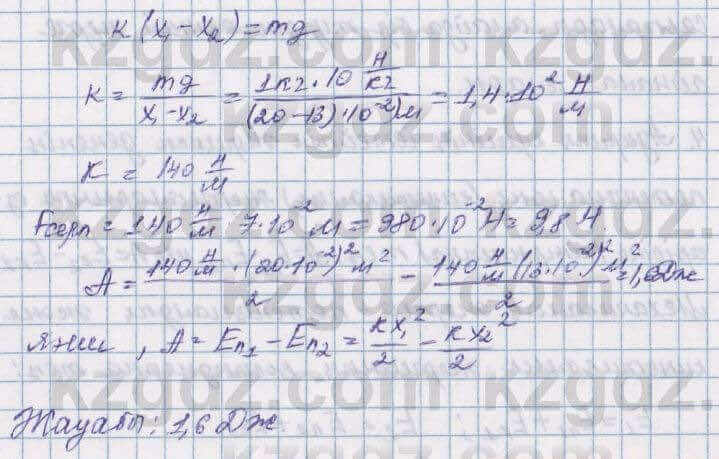 к(x₁ - x₂) = mg
к = mg/(x₁ - x₂) = (1кг · 10 Н/кг)/((20 - 13) · 10⁻²)м = 1,4 · 10² Н/м
к = 140 Н/м
Fсерп = 140 Н/м · 7 · 10⁻² м = 980 · 10⁻² Н = 9,8 Н.
A = (140 Н/м · (20 · 10⁻²)² м²)/2 - (140 Н/м (13 · 10⁻²)² м²)/2 = 1,6 Дж
яғни, A = Eп₁ - Eп₂ = кx₁²/2 - кx₂²/2
Жауабы: 1,6 Дж.
kzgdz.com